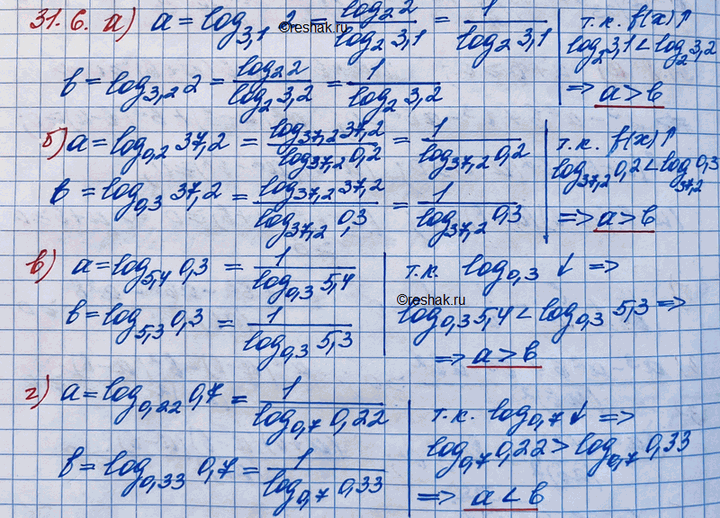 31.6. а) a = log_{3,1} 2 = log_2 2 / log_2 3,1 = 1 / log_2 3,1
т.к. f(x)↑
log_2 3,1 < log_2 3,2
b = log_{3,2} 2 = log_2 2 / log_2 3,2 = 1 / log_2 3,2
=> a > b
б) a = log_{0,2} 37,2 = log_{37,2} 37,2 / log_{37,2} 0,2 = 1 / log_{37,2} 0,2
т.к. f(x)↑
log_{37,2} 0,2 < log_{37,2} 0,3
b = log_{0,3} 37,2 = log_{37,2} 37,2 / log_{37,2} 0,3 = 1 / log_{37,2} 0,3
=> a > b
в) a = log_{5,4} 0,3 = 1 / log_{0,3} 5,4
т.к. log_{0,3} ↓ =>
b = log_{5,3} 0,3 = 1 / log_{0,3} 5,3
log_{0,3} 5,4 < log_{0,3} 5,3 =>
=> a > b
г) a = log_{0,22} 0,7 = 1 / log_{0,7} 0,22
т.к. log_{0,7} ↓ =>
log_{0,7} 0,22 > log_{0,7} 0,33
b = log_{0,33} 0,7 = 1 / log_{0,7} 0,33
=> a < b
©reshak.ru
©reshak.ru